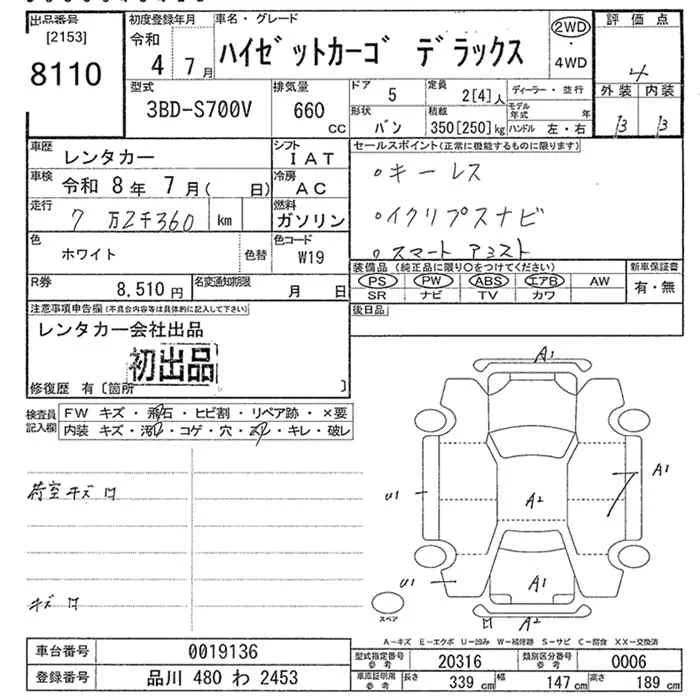 出品番号 初度登録年月 車名・グレード 2WD 評価点
[2153] 令和 ・
8110 4 7月 ハイゼットカーゴ デラックス 4WD 4
型式 排気量 ドア 5 定員 2[4]人 ディーラー・並行 外装 内装
3BD-S700V 660 cc 形状 バン 積載 350[250]kg モデル年式 年 ハンドル 左・右 B B
車歴 レンタカー シフト IAT セールスポイント(正常に機能するものに限ります)
車検 令和 8年 7月( 日) 冷房 AC 。キーレス
走行 7万2千360 km 燃料 ガソリン 。イクリプスナビ
色 ホワイト 色替 色コード W19 。スマートアシスト
装備品 (純正品に限り○をつけてください) 新車保証書
R券 8,510円 名変通知期限 月 日 PS PW ABS エアB AW 有・無
SR ナビ TV カワ
注意事項申告欄(不具合内容等は具体的に記入して下さい) 後日品
レンタカー会社出品
初出品
修復歴 有〔箇所 〕
検査員記入欄 FW キズ・飛石・ヒビ割・リペア跡・×要
内装 キズ・汚れ・コゲ・穴・ヌレ・キレ・破レ
荷室キズ
キズ
A1
A1
U1
A2
7
U1
A1
A2
スペア
A-キズ E-エクボ U-凹み W-補修跡 S-サビ C-腐食 XX-交換済
車台番号 0019136 型式指定番号 参考 20316 類別区分番号 参考 0006
登録番号 品川 480 わ 2453 車庫証明用 参考 長さ 339cm 幅 147cm 高さ 189cm